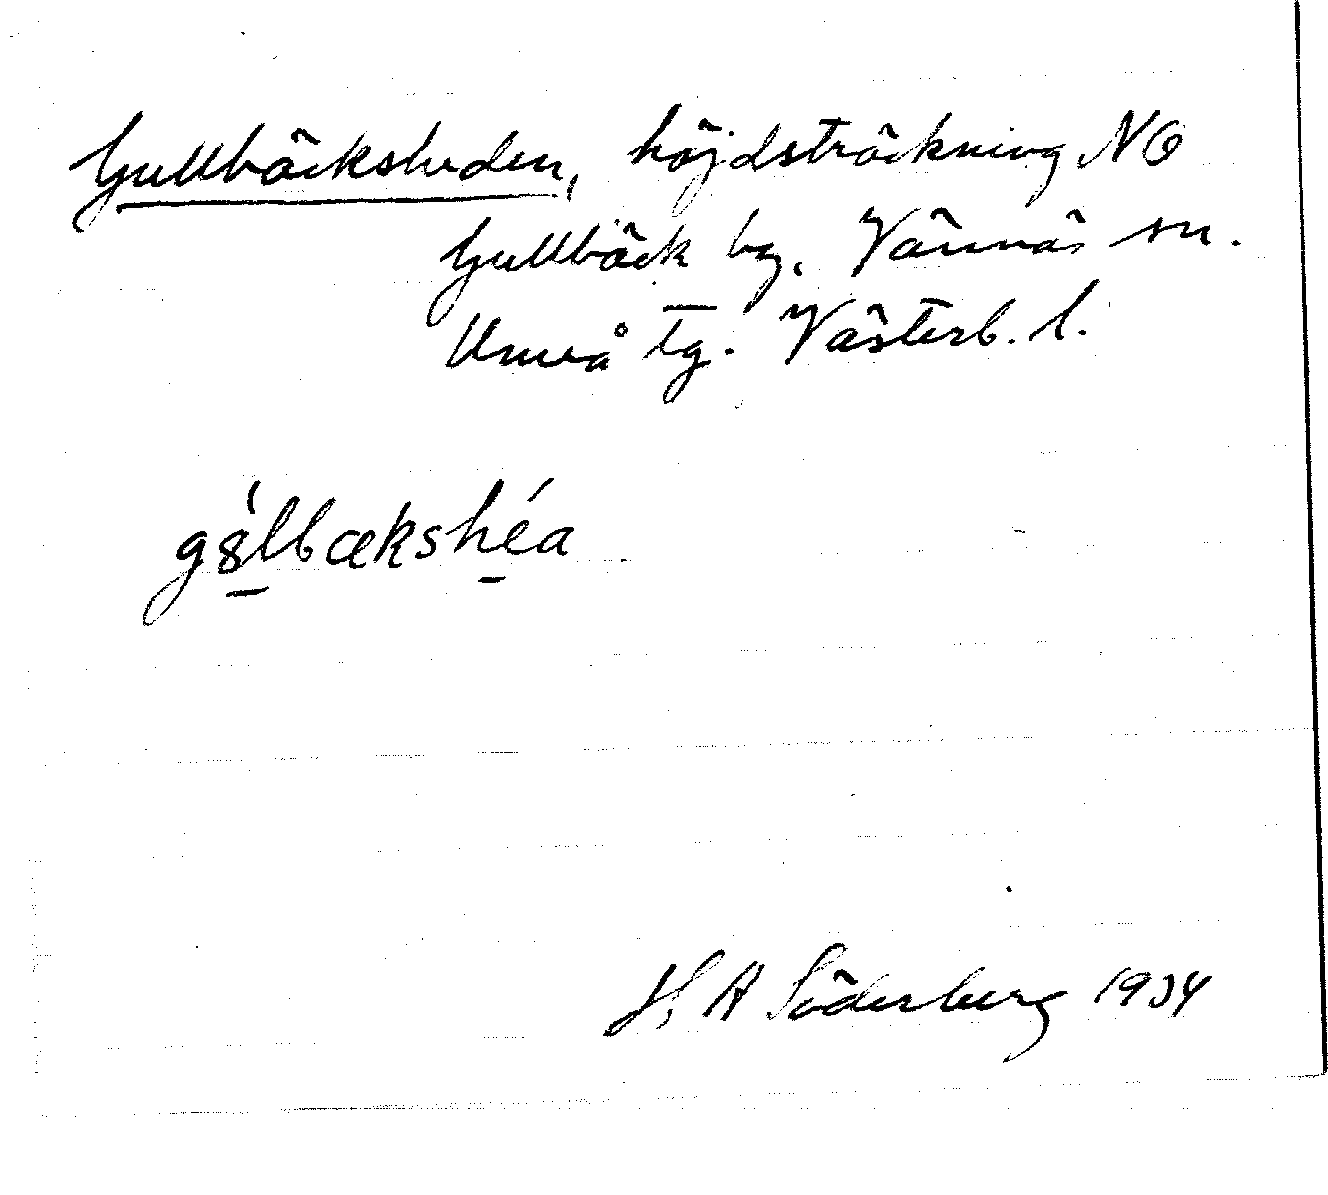 Gullbäcksheden, höjdsträckning NO
Gullbäck by, Vännäs sn.
Umeå tg. Västerb. l.
gȣ́llbækshéa
H, A Söderberg 1934